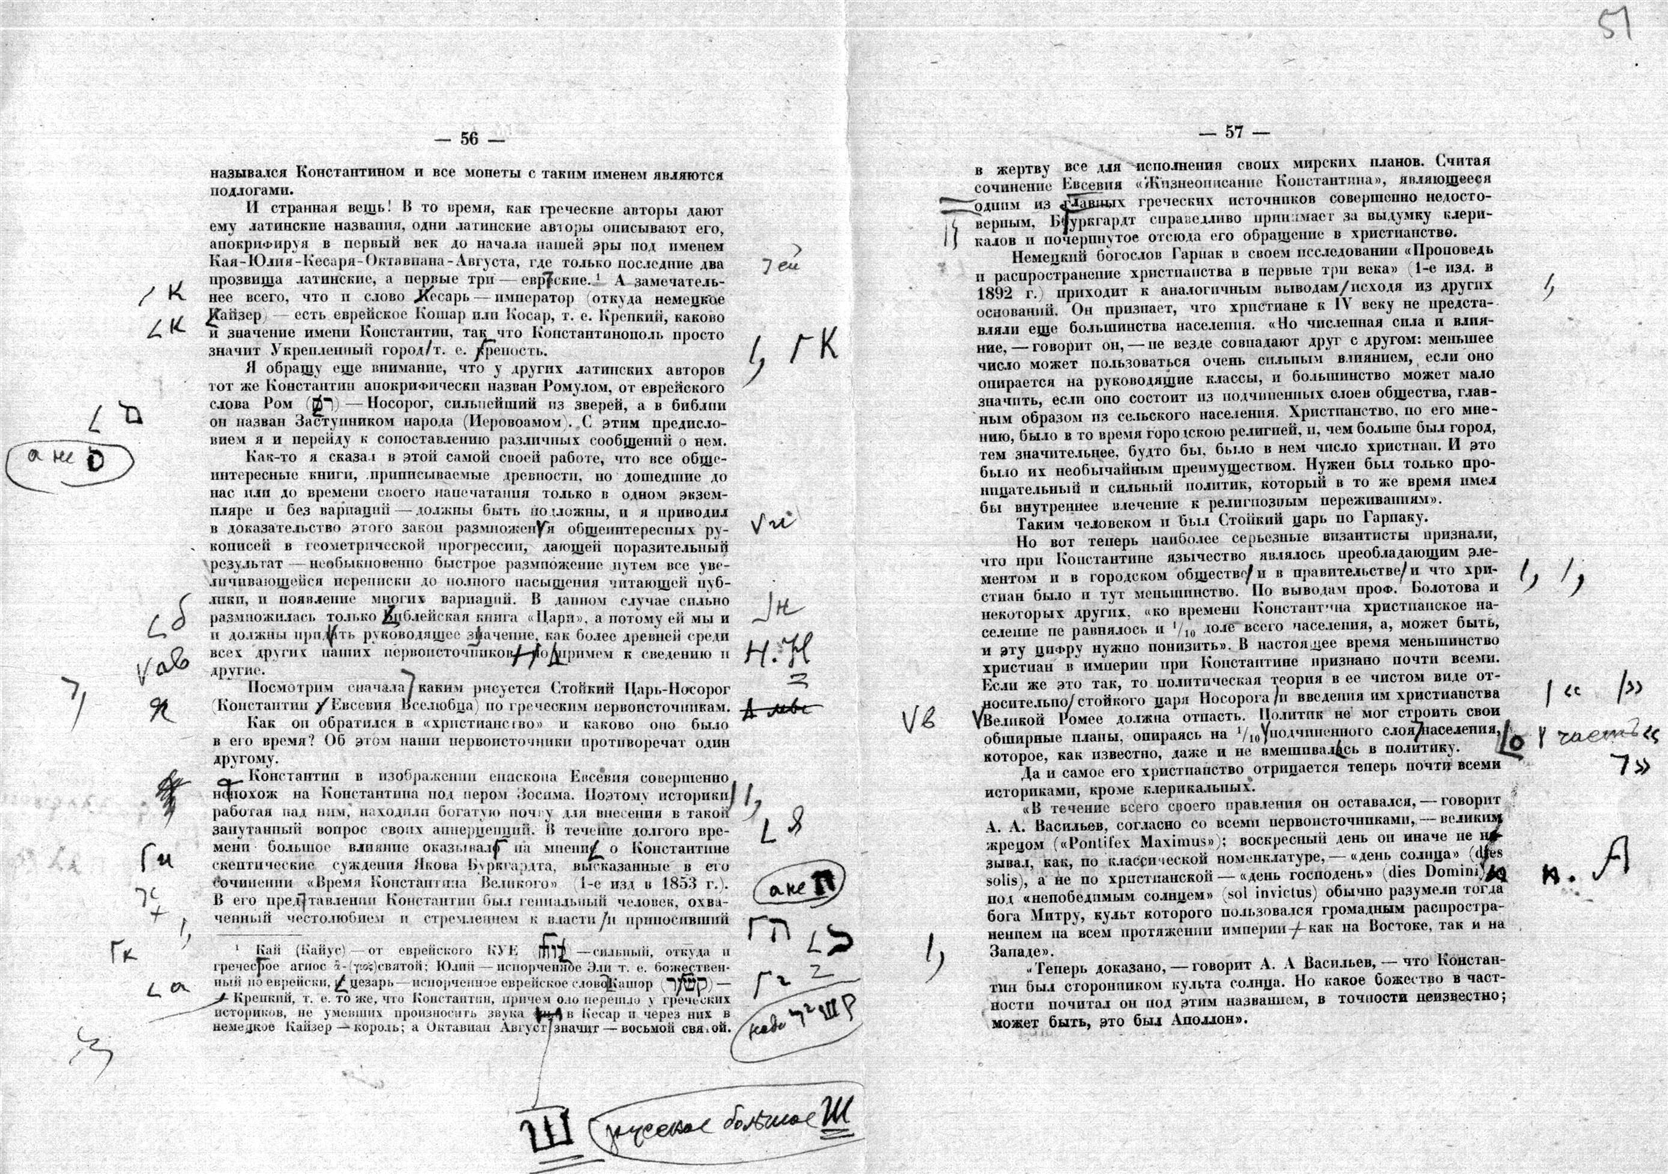 51
— 56 —
назывался Константином и все монеты с таким именем являются
подлогами.
И странная вещь! В то время, как греческие авторы дают
ему латинские названия, одни латинские авторы описывают его,
апокрифируя в первый век до начала нашей эры под именем
Кая-Юлия-Кесаря-Октавиана-Августа, где только последние два
прозвища латинские, а первые три — еврейские.¹ А замечатель-
нее всего, что и слово Кесарь — император (откуда немецкое
Кайзер) — есть еврейское Кошар или Косар, т. е. Крепкий, каково
и значение имени Константин, так что Константинополь просто
значит Укрепленный город/т. е. крепость.
Я обращу еще внимание, что у других латинских авторов
тот же Константин апокрифически назван Ромулом, от еврейского
слова Ром () — Носорог, сильнейший из зверей, а в библии
он назван Заступником народа (Иеровоамом). С этим предисло-
вием я и перейду к сопоставлению различных сообщений о нем.
Как-то я сказал в этой самой своей работе, что все обще-
интересные книги, приписываемые древности, но дошедшие до
нас или до времени своего напечатания только в одном экзем-
пляре и без вариаций — должны быть подложны, и я приводил
в доказательство этого закон размножения общеинтересных ру-
кописей в геометрической прогрессии, дающей поразительный
результат — необыкновенно быстрое размножение путем все уве-
личивающейся переписки до полного насыщения читающей пуб-
лики, и появление многих вариаций. В данном случае сильно
размножилась только Библейская книга «Цари», а потому ей мы и
и должны придать руководящее значение, как более древней среди
всех других наших первоисточников. Но примем к сведению и
другие.
Посмотрим сначала, каким рисуется Стойкий Царь-Носорог
(Константин у Евсевия Вселюбца) по греческим первоисточникам.
Как он обратился в «христианство» и каково оно было
в его время? Об этом наши первоисточники противоречат один
другому.
Константин в изображении епископа Евсевия совершенно
непохож на Константина под пером Зосима. Поэтому историки/
работая над ним, находили богатую почву для внесения в такой
запутанный вопрос своих апперцепций. В течение долгого вре-
мени большое влияние оказывал на мнения о Константине
скептические суждения Якова Буркгардта, высказанные в его
сочинении «Время Константина Великого» (1-е изд в 1853 г.).
В его представлении Константин был гениальный человек, охва-
ченный честолюбием и стремлением к власти/и приносивший
¹ Кай (Кайус) — от еврейского КУЕ — сильный, откуда и
греческое агиос святой; Юлий — испорченное Эли т. е. божествен-
ный по еврейски, цезарь — испорченное еврейское слово Кашор () —
— Крепкий, т. е. то же, что Константин, причем оно перешло у греческих
историков, не умевших произносить звука в Кесар и через них в
немецкое Кайзер — король; а Октавиан Август значит — восьмой святой.
а не
русское большое Ш
— 57 —
в жертву все для исполнения своих мирских планов. Считая
сочинение Евсевия «Жизнеописание Константина», являющееся
одним из главных греческих источников совершенно недосто-
верным, Буркгардт справедливо принимает за выдумку клери-
калов и почерпнутое отсюда его обращение в христианство.
Немецкий богослов Гарнак в своем исследовании «Проповедь
и распространение христианства в первые три века» (1-е изд. в
1892 г.) приходит к аналогичным выводам/исходя из других
оснований. Он признает, что христиане к IV веку не предста-
вляли еще большинства населения. «Но численная сила и влия-
ние, — говорит он, — не везде совпадают друг с другом: меньшее
число может пользоваться очень сильным влиянием, если оно
опирается на руководящие классы, и большинство может мало
значить, если оно состоит из подчиненных слоев общества, глав-
ным образом из сельского населения. Христианство, по его мне-
нию, было в то время городскою религией, и, чем больше был город,
тем значительнее, будто бы, было в нем число христиан. И это
было их необычайным преимуществом. Нужен был только про-
ницательный и сильный политик, который в то же время имел
бы внутреннее влечение к религиозным переживаниям».
Таким человеком и был Стойкий царь по Гарнаку.
Но вот теперь наиболее серьезные византисты признали,
что при Константине язычество являлось преобладающим эле-
ментом и в городском обществе/и в правительстве/и что хри-
стиан было и тут меньшинство. По выводам проф. Болотова и
некоторых других, «ко времени Константина христианское на-
селение не равнялось и 1/10 доле всего населения, а, может быть,
и эту цифру нужно понизить». В настоящее время меньшинство
христиан в империи при Константине признано почти всеми.
Если же это так, то политическая теория в ее чистом виде от-
носительно/стойкого царя Носорога/и введения им христианства
Великой Ромее должна отпасть. Политик не мог строить свои
обширные планы, опираясь на 1/10 подчиненного слоя населения,
которое, как известно, даже и не вмешивалсь в политику.
Да и самое его христианство отрицается теперь почти всеми
историками, кроме клерикальных.
«В течение всего своего правления он оставался, — говорит
А. А. Васильев, согласно со всеми первоисточниками, — великим
жрецом («Pontifex Maximus»); воскресный день он иначе не на-
зывал, как, по классической номенклатуре, — «день солнца» (dies
solis), а не по христианской — «день господень» (dies Domini),
под «непобедимым солнцем» (sol invictus) обычно разумели тогда
бога Митру, культ которого пользовался громадным распростра-
нением на всем протяжении империи — как на Востоке, так и на
Западе».
«Теперь доказано, — говорит А. А Васильев, — что Констан-
тин был сторонником культа солнца. Но какое божество в част-
ности почитал он под этим названием, в точности неизвестно;
может быть, это был Аполлон».